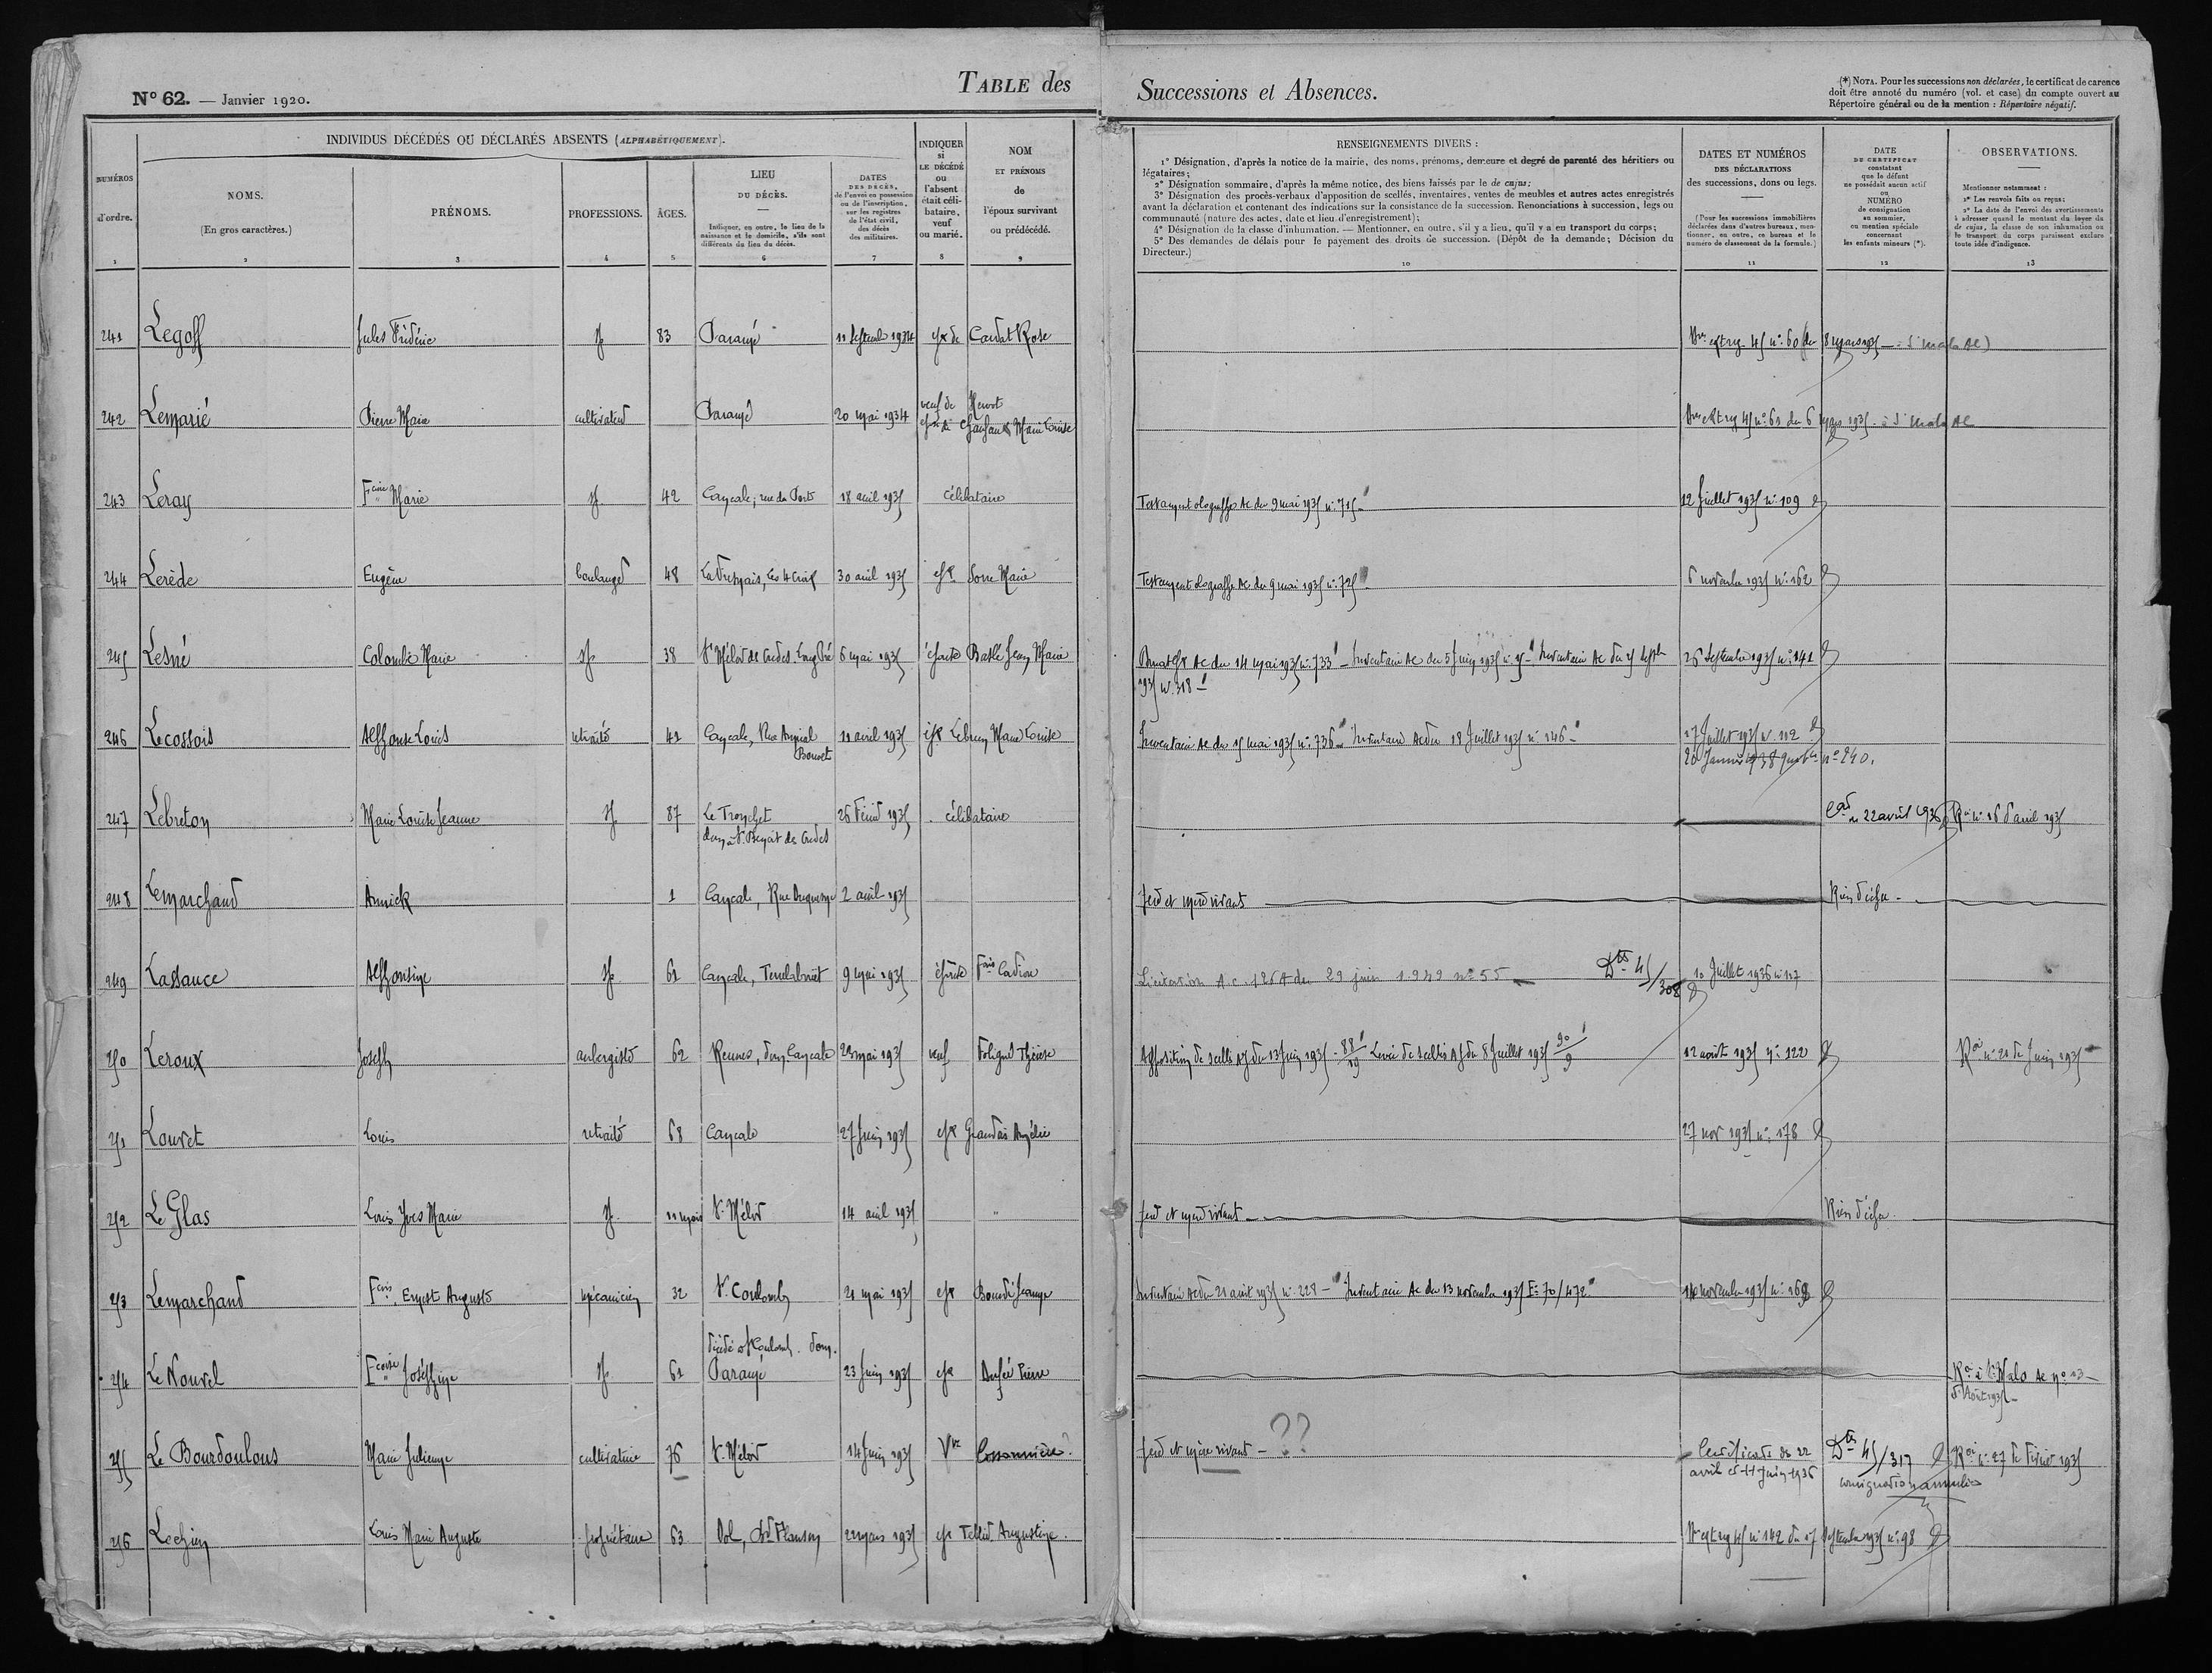 N° 62. — Janvier 1920.
TABLE des Successions et Absences.
(*) NOTA. Pour les successions non déclarées, le certificat de carence
doit être annoté du numéro (vol. et case) du compte ouvert au
Répertoire général ou de la mention : Répertoire négatif.
NUMÉROS
d'ordre.
1
INDIVIDUS DÉCÉDÉS OU DÉCLARÉS ABSENTS (ALPHABÉTIQUEMENT).
NOMS.
(En gros caractères.)
2
PRÉNOMS.
3
PROFESSIONS.
4
ÂGES.
5
LIEU
DU DÉCÈS.
Indiquer, en outre, le lieu de la
naissance et le domicile, s'ils sont
différents du lieu du décès.
6
DATES
DES DÉCÈS,
de l'envoi en possession
ou de l'inscription,
sur les registres
de l'état civil,
des décès
des militaires.
7
INDIQUER
si
LE DÉCÉDÉ
ou
l'absent
était céli-
bataire,
veuf
ou marié.
8
NOM
ET PRÉNOMS
de
l'époux survivant
ou prédécédé.
9
RENSEIGNEMENTS DIVERS :
1° Désignation, d'après la notice de la mairie, des noms, prénoms, demeure et degré de parenté des héritiers ou
légataires;
2° Désignation sommaire, d'après la même notice, des biens laissés par le de cujus;
3° Désignation des procès-verbaux d'apposition de scellés, inventaires, ventes de meubles et autres actes enregistrés
avant la déclaration et contenant des indications sur la consistance de la succession. Renonciations à succession, legs ou
communauté (nature des actes, date et lieu d'enregistrement);
4° Désignation de la classe d'inhumation. — Mentionner, en outre, s'il y a lieu, qu'il y a eu transport du corps;
5° Des demandes de délais pour le payement des droits de succession. (Dépôt de la demande; Décision du
Directeur.)
10
DATES ET NUMÉROS
DES DÉCLARATIONS
des successions, dons ou legs.
(Pour les successions immobilières
déclarées dans d'autres bureaux, men-
tionner, en outre, ce bureau et le
numéro de classement de la formule.)
11
DATE
DU CERTIFICAT
constatant
que le défunt
ne possédait aucun actif
ou
NUMÉRO
de consignation
au sommier,
ou mention spéciale
concernant
les enfants mineurs (*).
12
OBSERVATIONS.
Mentionner notamment :
1° Les renvois faits ou reçus;
2° La date de l'envoi des avertissements
à adresser quand le montant du loyer du
de cujus, la classe de son inhumation ou
le transport du corps paraissent exclure
toute idée d'indigence.
13
241 Legoff Jules Frédéric sp 83 Paramé 11 septemb 1934 épx de Cardat Rose 45 n° 60 du 8 mars 1935 — St Malo AC)
242 Lemarié Pierre Marie cultivateur Paramé 20 mai 1934 veuf de Hervot
épx de Marie Louise 45 n° 61 du 6 mars 1935 - à St Malo AC
243 Leray Fcoise Marie sp 42 Cancale, rue du Port 18 avril 1935 célibataire Testament olographe AC du 9 mai 1935 n° 715 12 Juillet 1935 n° 109
244 Lerède Eugène boulanger 48 La Fresnais, les 4 30 avril 1935 épx Sorre Marie Testament olographe AC du 9 mai 1935 n° 725 6 novembre 1935 n° 162
245 Lesné Colombe Marie sp 38 St Méloir des Ondes. 6 mai 1935 épouse Baslé Jean Marie AC du 14 mai 1935 n° 733 — Inventaire AC du 5 Juin 1935 n° 15 — Inventaire AC du 25 septbre
1935 n° 318 — 26 Septembre 1935 n° 141
246 Lecossois Alphonse Louis retraité 41 Cancale, Rue Amiral
Bouvet 11 avril 1935 épx Lebrun Marie Louise Inventaire AC du 15 mai 1935 n° 736 — Inventaire AC du 18 Juillet 1935 n° 146 — 17 Juillet 1935 n° 112
20 Janvier 1938 n° 240.
247 Lebreton Marie Louise Jeanne sp 87 Le Tronchet
dom à St Benoit des Ondes 26 Février 1935 célibataire 22 avril 1936 n° 16 d'avril 1935
248 Lemarchand Annick 1 Cancale, Rue Duquesne 2 avril 1935 père et mère vivants Rien d'échu.
249 Lassance Alphonsine sp 61 Cancale, Terrelabouët 9 mai 1935 épouse Fois Cadiou Licitation A.C. 126 A du 29 juin 1949 n° 55 — Dts 45/308 10 Juillet 1936 n° 117
250 Leroux Joseph aubergiste 62 Rennes, dom Cancale 28 mai 1935 veuf Foligné Thérèse Apposition de scellés AJ du 13 Juin 1935 - 88/19 Levée de scellés AJ du 8 Juillet 1935 90/9 12 août 1935 n° 122 n° 21 de Juin 1935
251 Louvet Louis retraité 68 Cancale 27 Juin 1935 épx Grandais Angélie 27 nov 1935 n° 178
252 Le Glas Louis Yves Marie sp 11 mois St Méloir 14 avril 1935 " père et mère vivants — Rien d'échu.
253 Lemarchand Fcois, Ernest Auguste mécanicien 32 St Coulomb 21 mai 1935 épx Bourdé Jeanne Inventaire AC du 21 août 1935 n° 228 — Inventaire AC du 13 novembre 1935 F° 70/472 14 novembre 1935 n° 168
254 Le Nouvel Fcoise Joséphine sp 61 décédée St Coulomb. dom.
Paramé 23 Juin 1935 épx Dupé Pierre à St Malo AC n° 13 —
d'Août 1935 —
255 Le Bourdoulous Marie Julienne cultivatrice 76 St Méloir 14 Juin 1935 Vve Cossonnière? père et mère vivant — ?? Certificats du 22
avril et 11 Juin 1936 Dts 45/317
consignation annulée n° 27 de Février 1935
256 Lechien Louis Marie Auguste propriétaire 63 Dol, 2 mars 1935 épx Tellier Augustine. 45 n° 142 du 17 Septembre 1935 n° 98